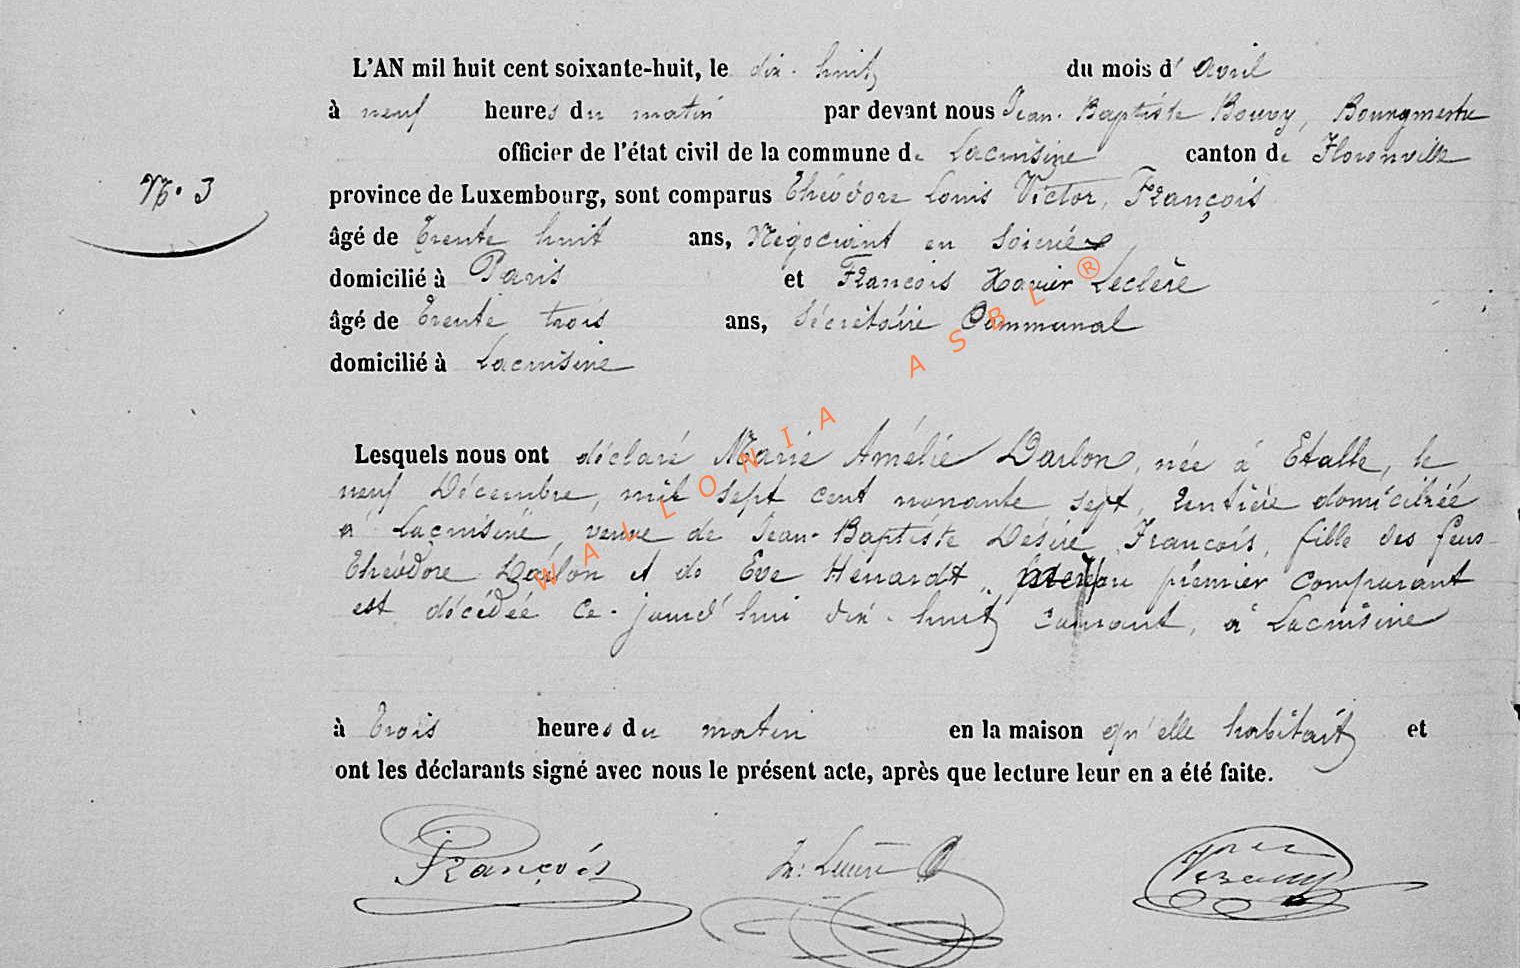 L'AN mil huit cent soixante-huit, le dix-huit du mois d' avril
à neuf heures du matin par devant nous Jean-Baptiste Bouvy, Bourgmestre
officier de l'état civil de la commune de Lacuisine canton de Florenville
N° 3
province de Luxembourg, sont comparus Théodore Louis Victor, François
âgé de trente huit ans, Négociant en soieries
domicilié à Paris et François Xavier Leclère
âgé de trente trois ans, Secrétaire Communal
domicilié à Lacuisine
Lesquels nous ont déclaré Marie Amélie Darlon, née à Etalle, le
neuf Décembre, mil sept cent nonante sept, rentière domiciliée
à Lacuisine, veuve de Jean-Baptiste Désiré François, fille des feus
Théodore Darlon et de Eve Henardt, du premier comparant
est décédée ce-jourd'hui dix-huit courant, à Lacuisine
à trois heures du matin en la maison qu'elle habitait et
ont les déclarants signé avec nous le présent acte, après que lecture leur en a été faite.
François
WALLONIA ASBL ®